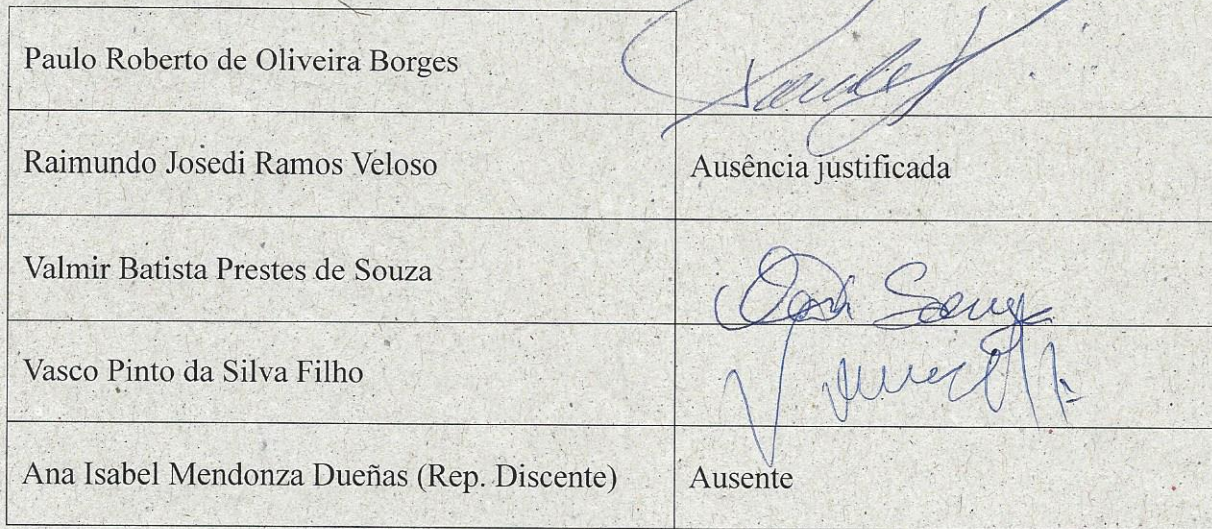 Paulo Roberto de Oliveira Borges
Raimundo Josedi Ramos Veloso
Ausência justificada
Valmir Batista Prestes de Souza
Vasco Pinto da Silva Filho
Ana Isabel Mendonza Dueñas (Rep. Discente)
Ausente